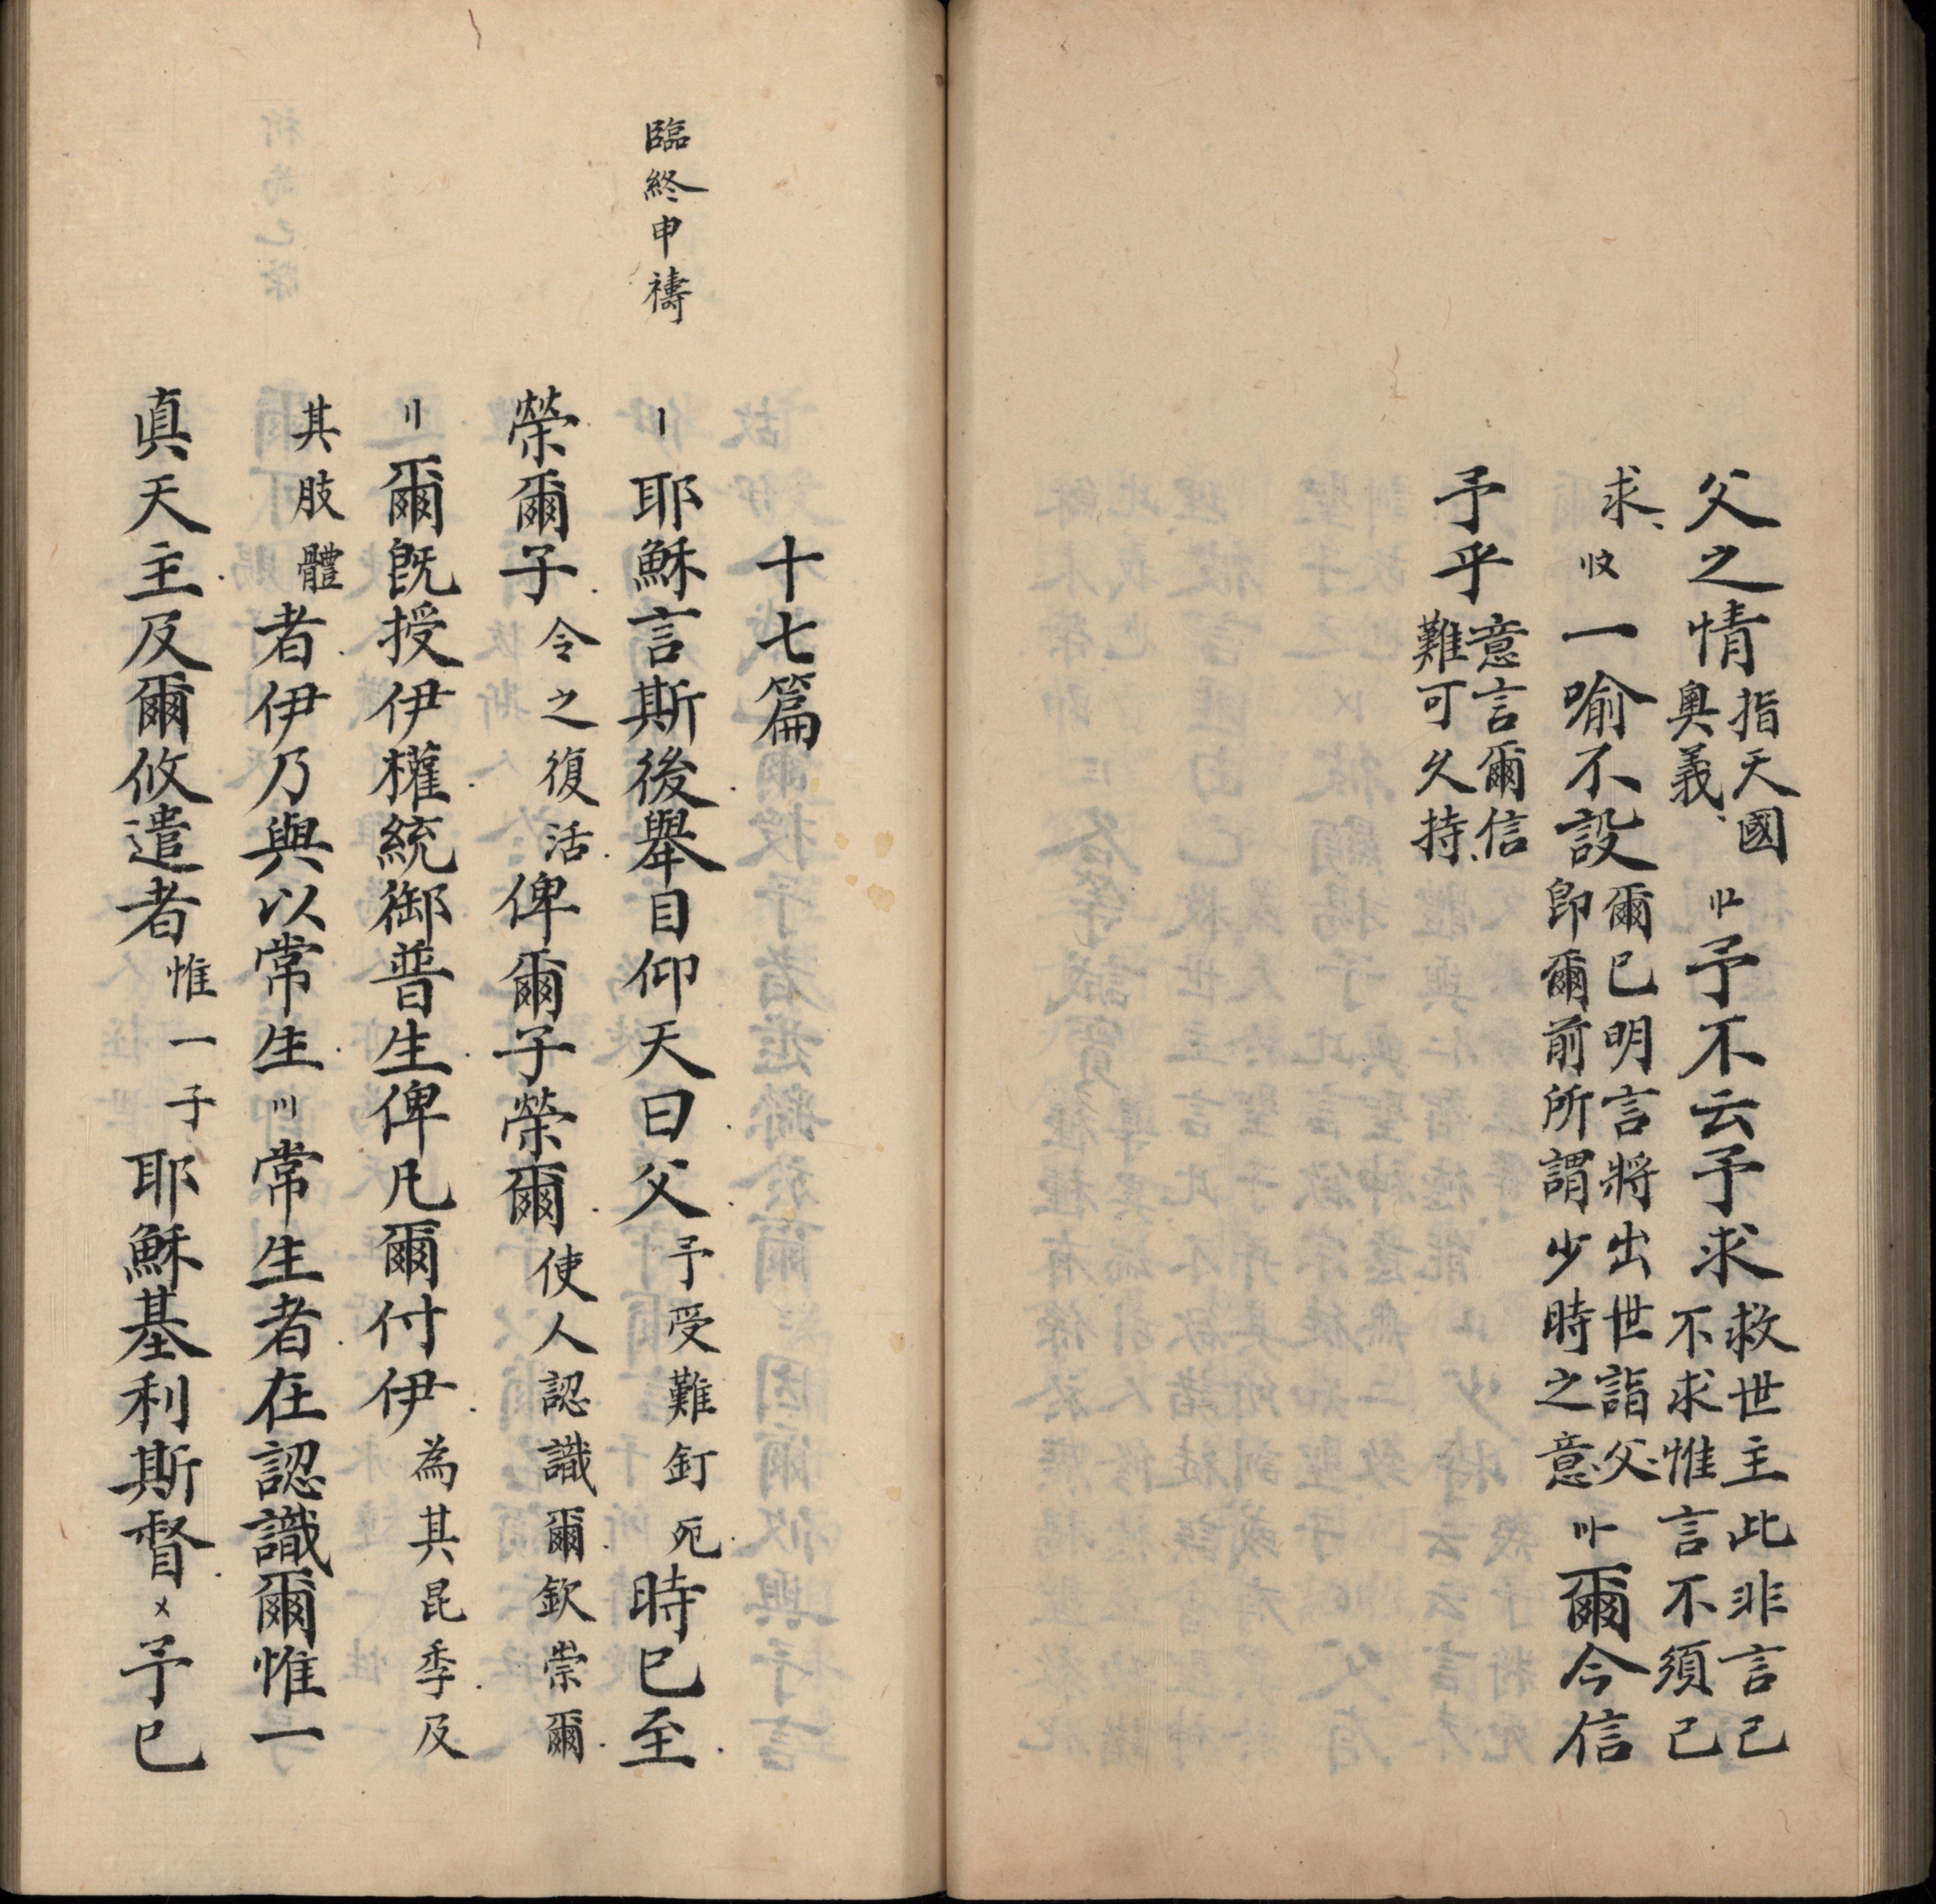 父之情指天國奧義〢〦予不云予求救世主此非言己不求惟言不須己
求〢〩一喻不設爾已明言將出世詣父即爾前所謂少時之意〣一爾今信
予乎意言爾信難可久持
十七篇
臨終申禱
〡耶穌言斯後舉目仰天曰父予受難釘死時已至
榮爾子令之復活俾爾子榮爾使人認識爾欽崇爾
〢爾既授伊權統御普生俾凡爾付伊為其昆季及
其肢體者伊乃與以常生〣常生者在認識爾惟一
眞天主及爾攸遣者惟一子耶穌基利斯督〤予已